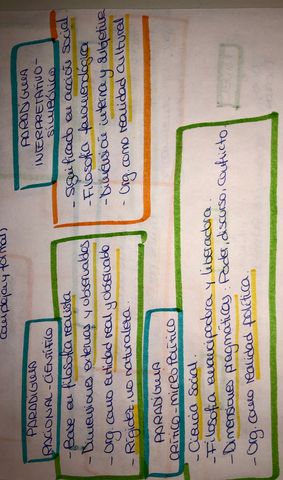 compleja y formal)
PARADIGMA
RACIONAL-CIENTÍFICO
- Base en filosofía realista
- Dimensiones externas y observables
- Org. como entidad real y observable
- Rigidez, no naturaleza.
PARADIGMA
INTERPRETATIVO-
SIMBÓLICO
- Significado en acción social.
- Filosofía fenomenológica
- Dimensión interna y subjetiva
- Org como realidad cultural
PARADIGMA
CRÍTICO-MICROPOLÍTICO
- Ciencia social.
- Filosofía emancipadora y liberadora.
- Dimensiones pragmáticas: Poder, discurso, conflicto.
- Org. como realidad política.